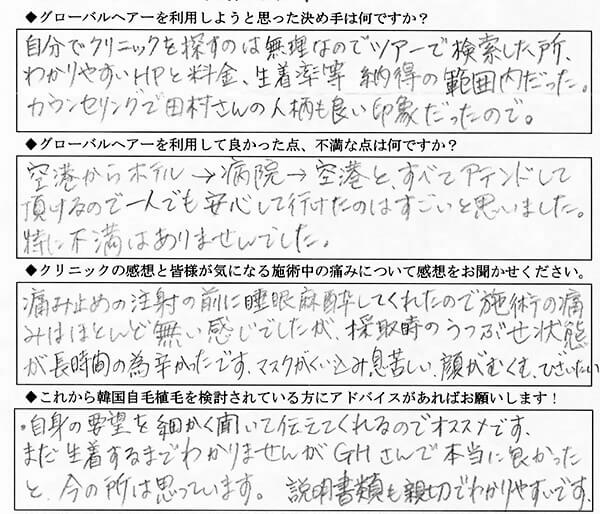 ◆グローバルヘアーを利用しようと思った決め手は何ですか？
自分でクリニックを探すのは無理なのでツアーで検索した所、
わかりやすいHPと料金、生着率等 納得の範囲内だった。
カウンセリングで田村さんの人柄も良い印象だったので。
◆グローバルヘアーを利用して良かった点、不満な点は何ですか？
空港からホテル→病院→空港と、すべてアテンドして
頂けるので一人でも安心して行けたのはすごいと思いました。
特に不満はありませんでした。
◆クリニックの感想と皆様が気になる施術中の痛みについて感想をお聞かせください。
痛み止めの注射の前に睡眠麻酔してくれたので施術の痛
みはほとんど無い感じでしたが、採取時のうつぶせ状態
が長時間の為辛かったです、マスクがくい込み息苦しい、顔がむくむ、ひざいたい
◆これから韓国自毛植毛を検討されている方にアドバイスがあればお願いします！
・自身の要望を細かく聞いて伝えてくれるのでオススメです、
まだ生着するまでわかりませんがGHさんで本当に良かった
と、今の所は思っています。 説明書類も親切でわかりやすいです、